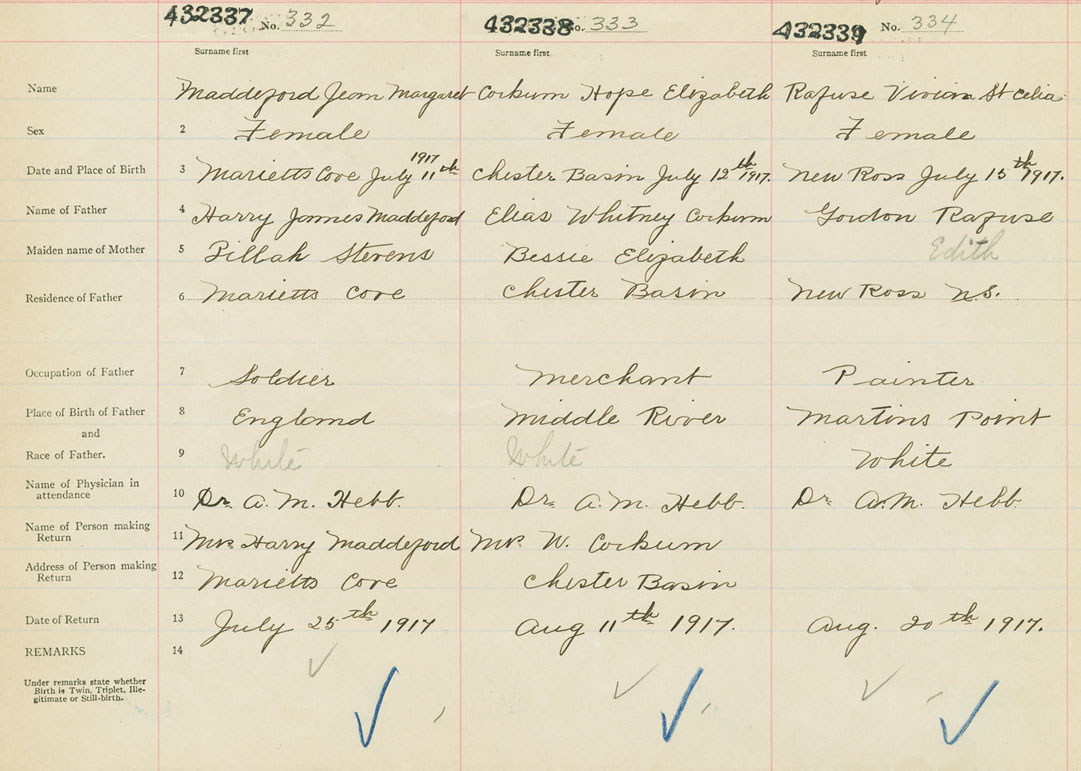 432337 No. 332 432338 No. 333 432339 No. 334
Surname first Surname first Surname first
Name 1 Maddeford Jean Margaret Corkum Hope Elizabeth Rafuse Vivian St Celia
Sex 2 Female Female Female
Date and Place of Birth 3 Marietts Cove July 11th 1917 Chester Basin July 12th 1917. New Ross July 15th 1917.
Name of Father 4 Harry James Maddeford Elias Whitney Corkum Gordon Rafuse
Maiden name of Mother 5 Zillah Stevens Bessie Elizabeth Edith
Residence of Father 6 Marietts Cove Chester Basin New Ross N.S.
Occupation of Father 7 Soldier Merchant Painter
Place of Birth of Father 8 England Middle River Martins Point
and
Race of Father. 9 White White White
Name of Physician in
attendance 10 Dr. A. M. Hebb. Dr. A. M. Hebb. Dr. A. M. Hebb.
Name of Person making
Return 11 Mrs Harry Maddeford Mr. W. Corkum
Address of Person making
Return 12 Marietts Cove Chester Basin
Date of Return 13 July 25th 1917 Aug 11th 1917. Aug. 20th 1917.
REMARKS 14
Under remarks state whether
Birth is Twin, Triplet, Ille-
gitimate or Still-birth.